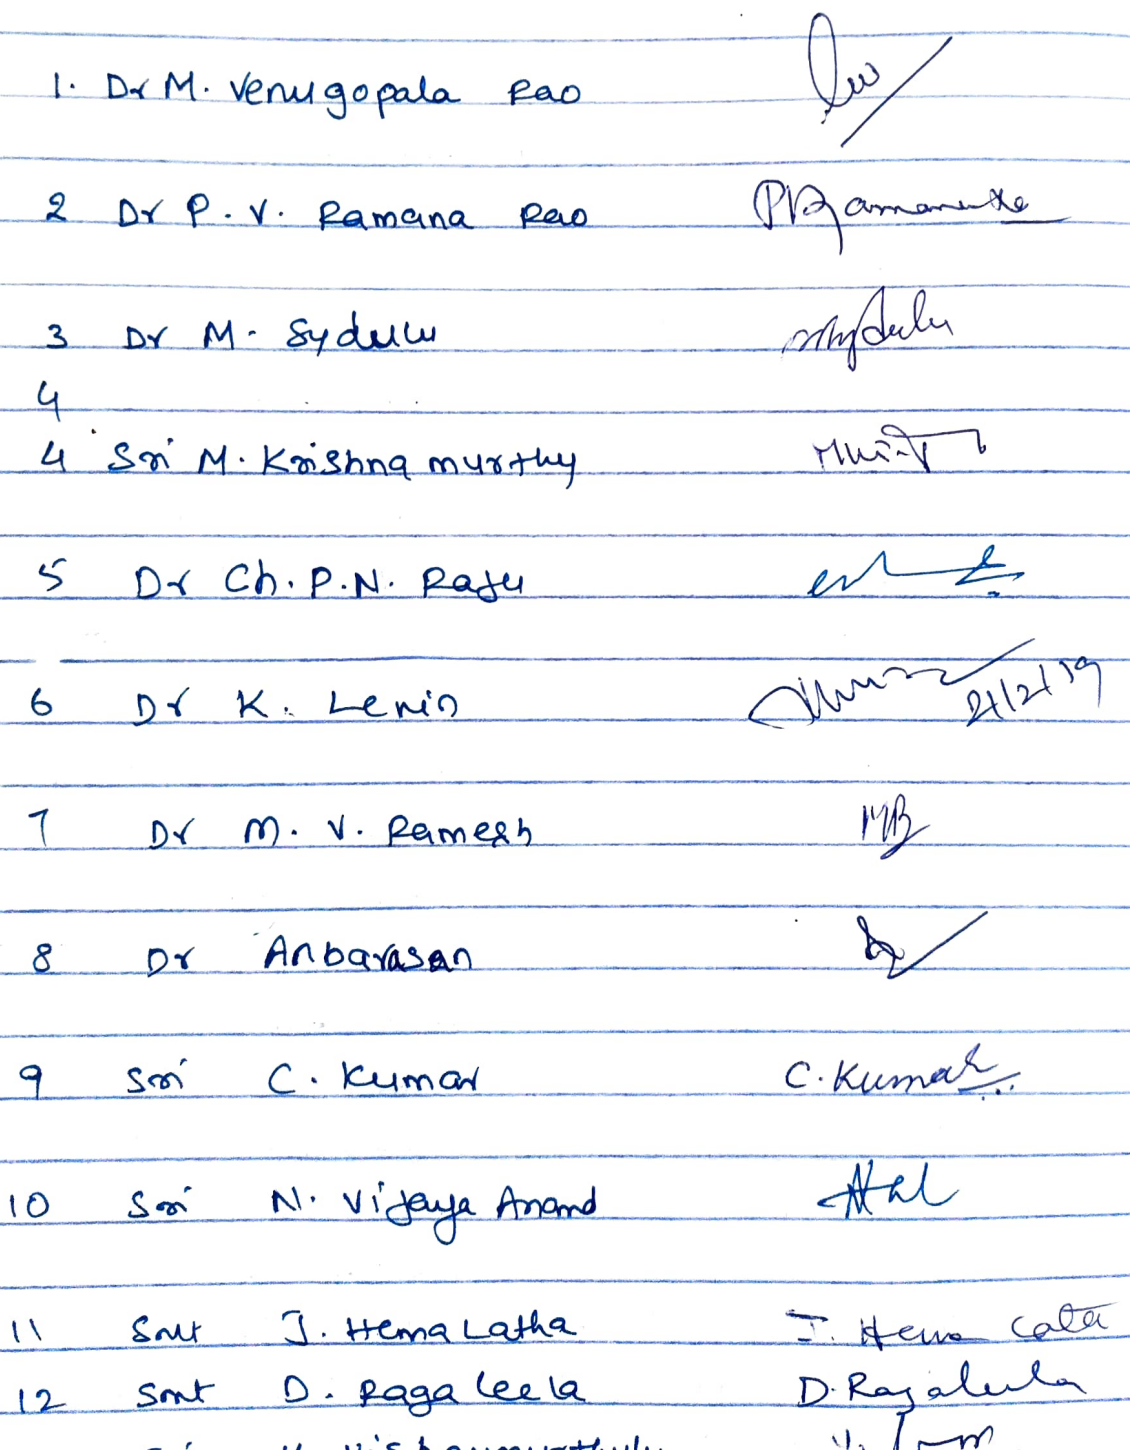 1. Dr M. Venugopala Rao
2 Dr P. V. Ramana Rao
3 Dr M. Sydulu
4
4 Sri M. Krishna murthy
5 Dr Ch. P. N. Raju
6 Dr K. Lenin 21/2/19
7 Dr M. V. Ramesh
8 Dr Anbarasan
9 Sri C. Kumar C. Kumar
10 Sri N. Vijaya Anand
11 Smt J. Hema Latha J. Hema Lata
12 Smt D. Raga leela D. Ragaleela